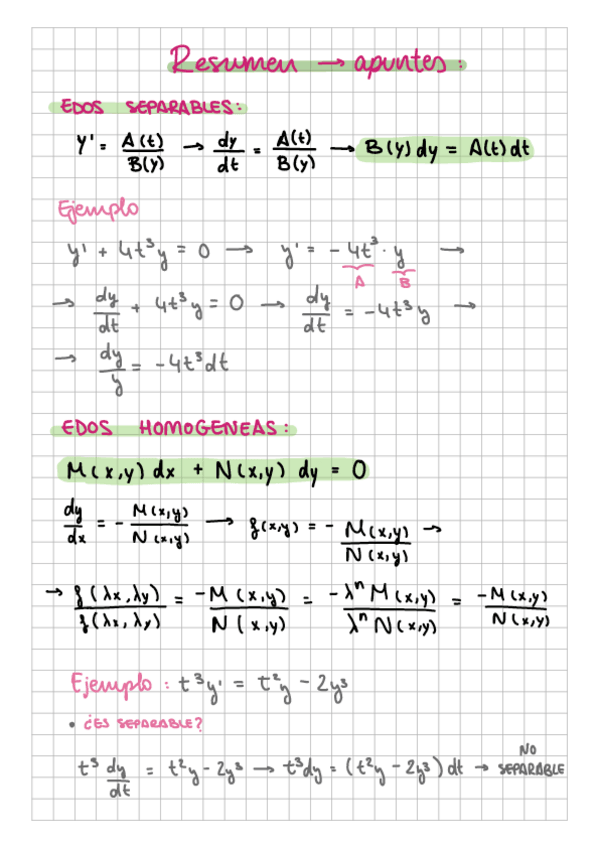 Resumen → apuntes:
EDOS SEPARABLES:
y' = A(t)/B(y) → dy/dt = A(t)/B(y) → B(y) dy = A(t) dt
Ejemplo
y' + 4t³y = 0 → y' = - 4t³ · y →
A B
→ dy/dt + 4t³y = 0 → dy/dt = -4t³y →
→ dy/y = -4t³dt
EDOS HOMOGENEAS:
M(x,y) dx + N(x,y) dy = 0
dy/dx = - M(x,y)/N(x,y) → f(x,y) = - M(x,y)/N(x,y) →
→ f(λx,λy)/f(λx,λy) = -M(x,y)/N(x,y) = -λⁿM(x,y)/λⁿN(x,y) = -M(x,y)/N(x,y)
Ejemplo: t³y' = t²y - 2y³
• ¿ES SEPARABLE?
t³ dy/dt = t²y - 2y³ → t³dy = (t²y - 2y³) dt → NO SEPARABLE